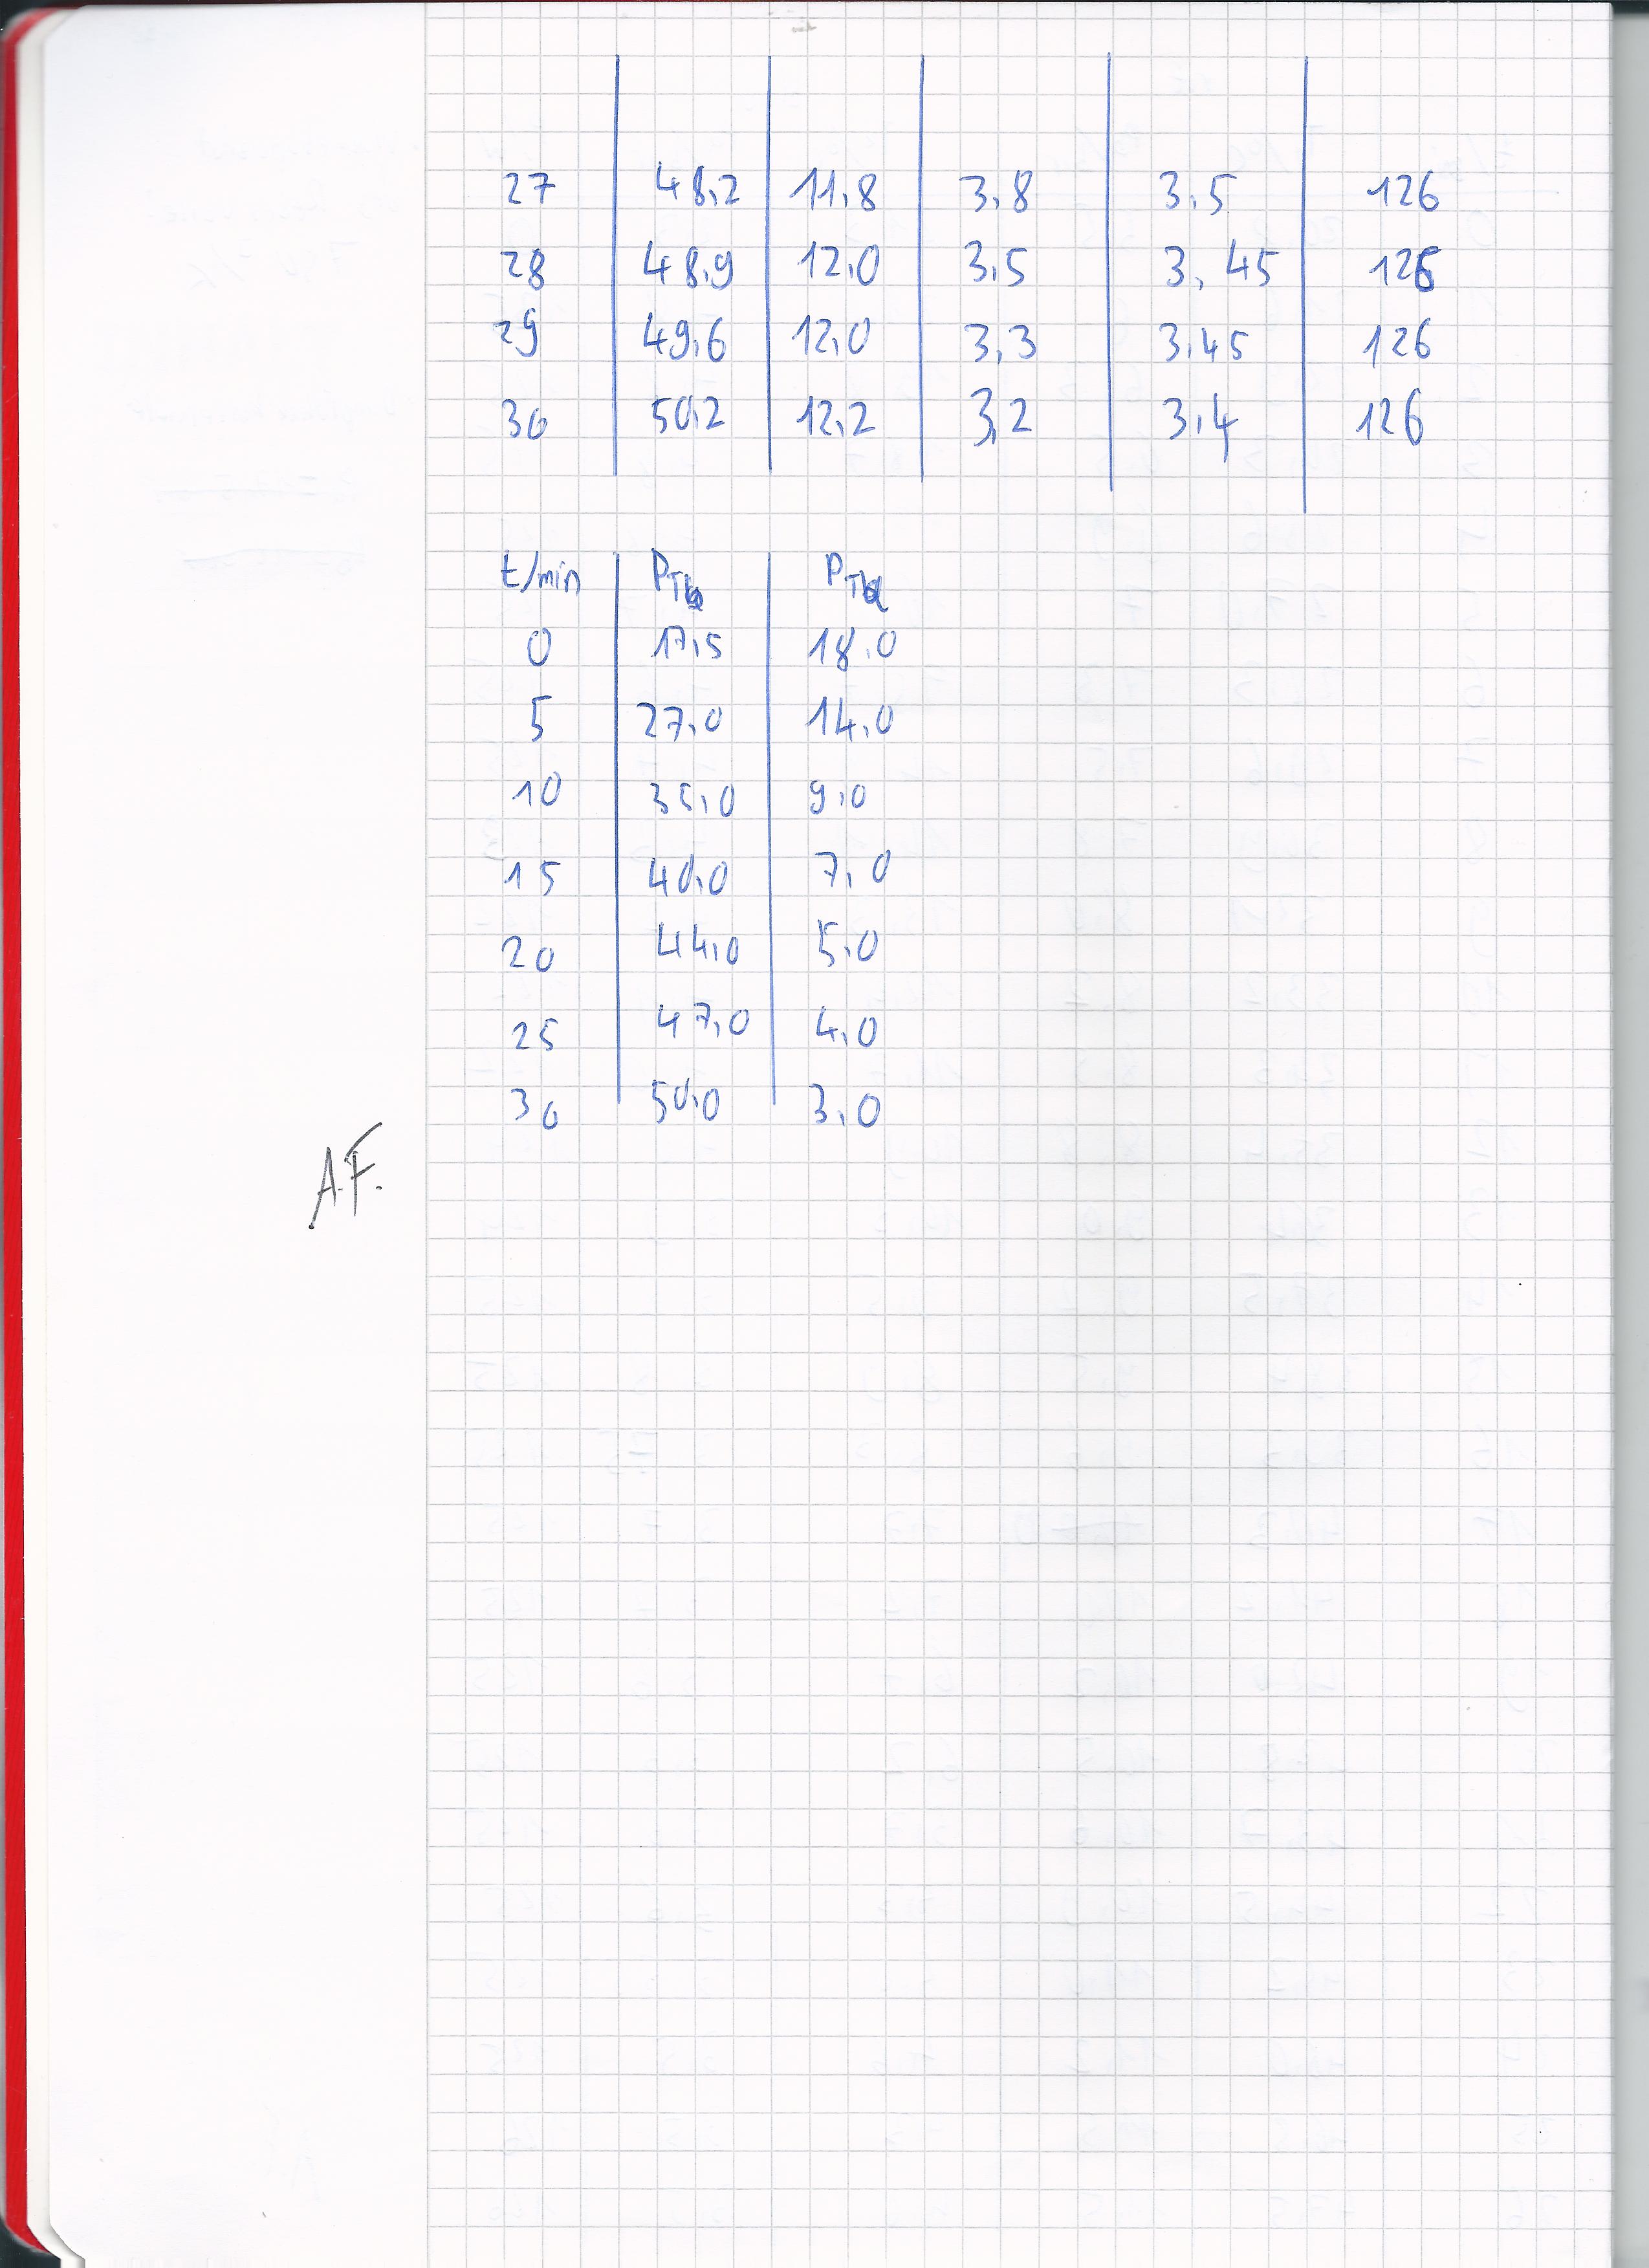 27 48,2 11,8 3,8 3,5 126
28 48,9 12,0 3,5 3,45 126
29 49,6 12,0 3,3 3,45 126
30 50,2 12,2 3,2 3,4 126
t/min
0 17,5 18,0
5 27,0 14,0
10 35,0 9,0
15 40,0 7,0
20 44,0 5,0
25 47,0 4,0
30 50,0 3,0
A.F.